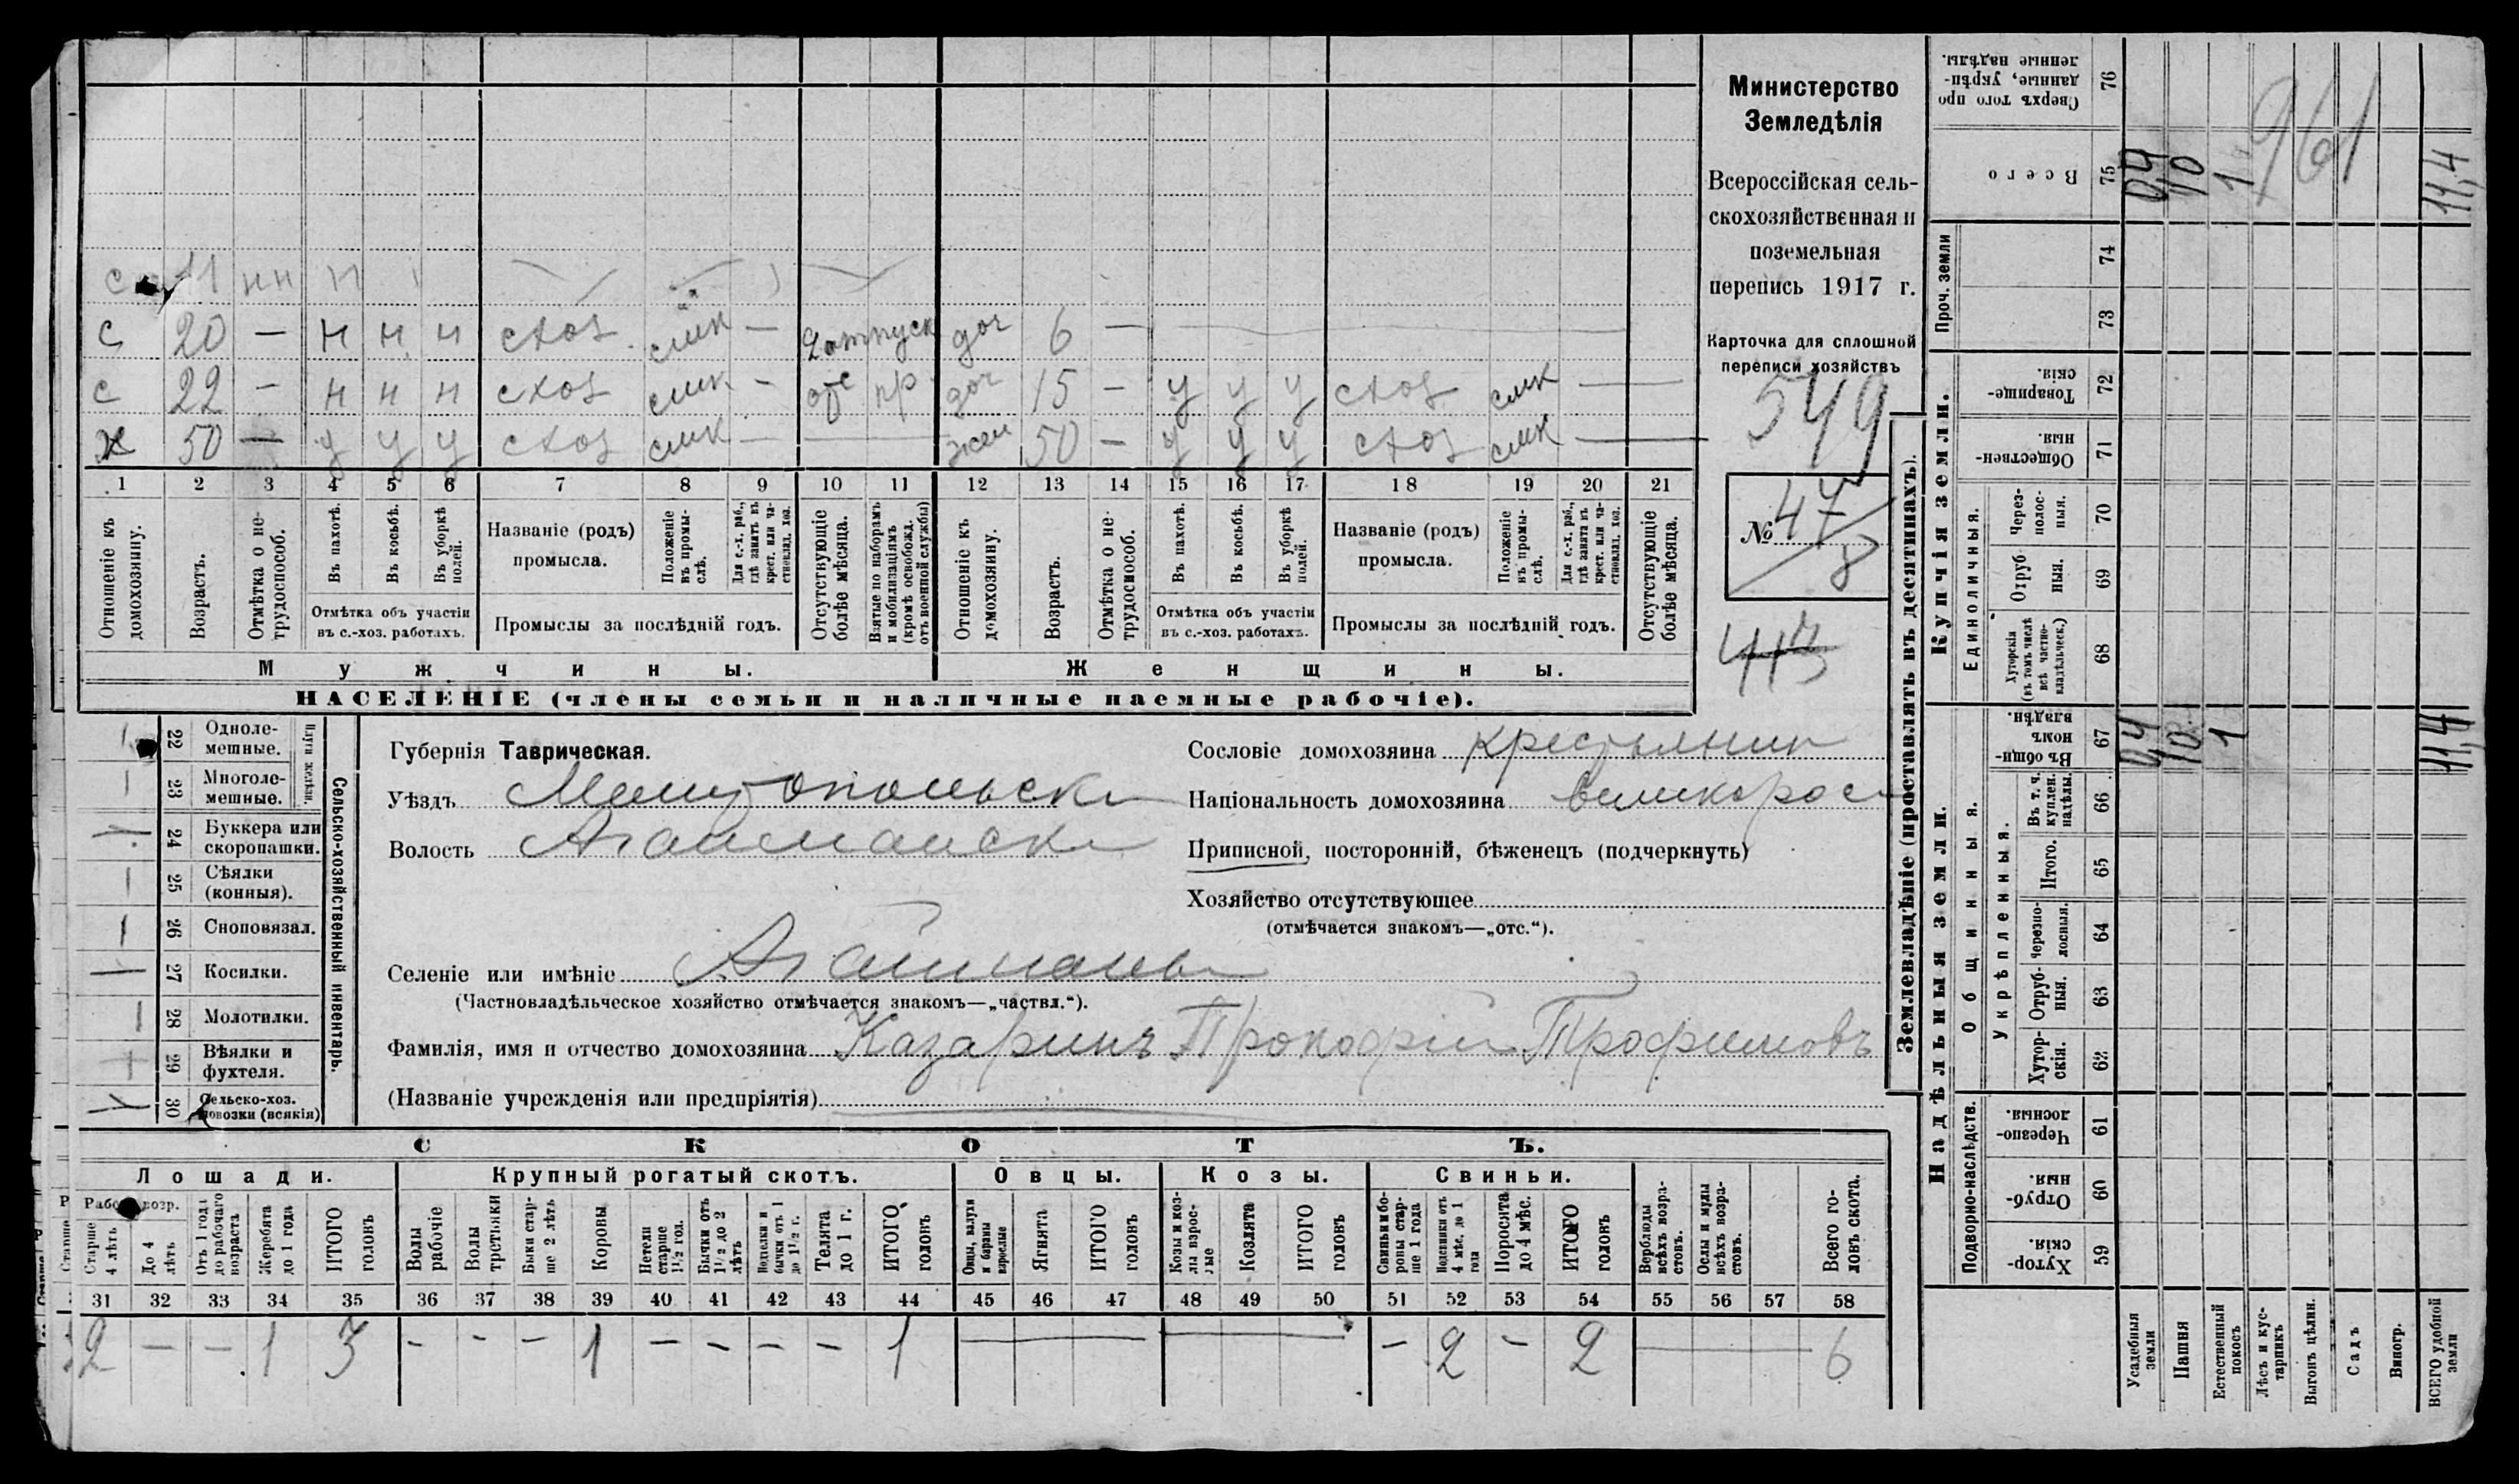 с 11 нн н
с 20 — н н н схоз смк — отпуск доч 6 —
с 22 — н н н схоз смк — отс пр. доч 15 — у у у схоз смк —
х 50 — у у у схоз смк — жен 50 — у у у схоз смк —
1 2 3 4 5 6 7 8 9 10 11 12 13 14 15 16 17 18 19 20 21
Отношеніе къ домохозяину.
Возрастъ.
Отмѣтка о нетрудоспособ.
Въ пахотѣ.
Въ косьбѣ.
Въ уборкѣ полей.
Отмѣтка объ участіи въ с.-хоз. работахъ.
Названіе (родъ) промысла.
Положеніе въ промыслѣ.
Для с.-х. раб., гдѣ занятъ въ крест. или частновлад. хоз.
Промыслы за послѣдній годъ.
Отсутствующіе болѣе мѣсяца.
Взятые по наборамъ и мобилизаціямъ (кромѣ освобожд. отъ военной службы)
Отношеніе къ домохозяину.
Возрастъ.
Отмѣтка о нетрудоспособ.
Въ пахотѣ.
Въ косьбѣ.
Въ уборкѣ полей.
Отмѣтка объ участіи въ с.-хоз. работахъ.
Названіе (родъ) промысла.
Положеніе въ промыслѣ.
Для с.-х. раб., гдѣ занятъ въ крест. или частновлад. хоз.
Промыслы за послѣдній годъ.
Отсутствующіе болѣе мѣсяца.
Мужчины.
Женщины.
НАСЕЛЕНІЕ (члены семьи и наличные наемные рабочіе).
Министерство
Земледѣлія
Всероссійская сель-
скохозяйственная и
поземельная
перепись 1917 г.
Карточка для сплошной
переписи хозяйствъ
549
№ 47
8
Плуги желѣзн.
22 Однолемешные.
23 Многолемешные.
24 Буккера или скоропашки.
25 Сѣялки (конныя).
26 Сноповязал.
27 Косилки.
28 Молотилки.
29 Вѣялки и фухтеля.
30 Сельско-хоз. повозки (всякія)
Сельско-хозяйственный инвентарь.
Губернія Таврическая.
Уѣздъ Мелитопольск
Волость Агайманск
Селеніе или имѣніе Агайманы
(Частновладѣльческое хозяйство отмѣчается знакомъ—„частвл.“).
Фамилія, имя и отчество домохозяина Казаринъ Прокофій Трофимовъ
(Названіе учрежденія или предпріятія)
Сословіе домохозяина крестьянин
Національность домохозяина великорос
Приписной, посторонній, бѣженецъ (подчеркнуть)
Хозяйство отсутствующее
(отмѣчается знакомъ—„отс.“).
СКОТЪ.
Лошади. Крупный рогатый скотъ. Овцы. Козы. Свиньи.
Рабоч. возр.
Старше 4 лѣтъ
До 4 лѣтъ
Отъ 1 года до рабочаго возраста
Жеребята до 1 года
ИТОГО головъ
Волы рабочіе
Волы
Быки старше 2 лѣтъ
Коровы
Нетели старше 1½ год.
Бычки отъ 1½ до 2 лѣтъ
бычки отъ 1 до 1½ г.
Телята до 1 г.
ИТОГО головъ
Овцы, валухи и бараны взрослые
Ягнята
ИТОГО головъ
Козы и козлы взрослые
Козлята
ИТОГО головъ
Свиньи и боровы старше 1 года
Подсвинки отъ 4 мѣс. до 1 года
Поросята до 4 мѣс.
ИТОГО головъ
Верблюды всѣхъ возрастовъ.
Ослы и мулы всѣхъ возрастовъ.
Всего головъ скота.
31 32 33 34 35 36 37 38 39 40 41 42 43 44 45 46 47 48 49 50 51 52 53 54 55 56 57 58
2 — — 1 3 - - - 1 - - - - 1 — — - 2 - 2 — 6
Землевладѣніе (проставлять въ десятинахъ).
Купчія земли.
Надѣльныя земли.
Сверхъ того проданные, укрѣпленные надѣлы. 76
Всего 75 0,4 10 1 11,4
961
Проч. земли 74 73
Товарищескія. 72
Общественныя. 71
Единоличныя.
Черезполосныя. 70
Отрубныя. 69
Хуторскія (въ томъ числѣ всѣ частновладѣльческ.) 68
Общинныя.
Въ общинномъ владѣн. 67 0,4 10 1 11,4
Укрѣпленныя.
Въ т. ч. куплен. надѣлы. 66
Итого. 65
Черезполосныя. 64
Отрубныя. 63
Хуторскія. 62
Подворно-наслѣдств.
Черезполосныя. 61
Отрубныя. 60
Хуторскія. 59
Усадебныя земли
Пашня
Естественный покосъ
Лѣсъ и кустарникъ
Выгонъ цѣлин.
Садъ
Виногр.
ВСЕГО удобной земли